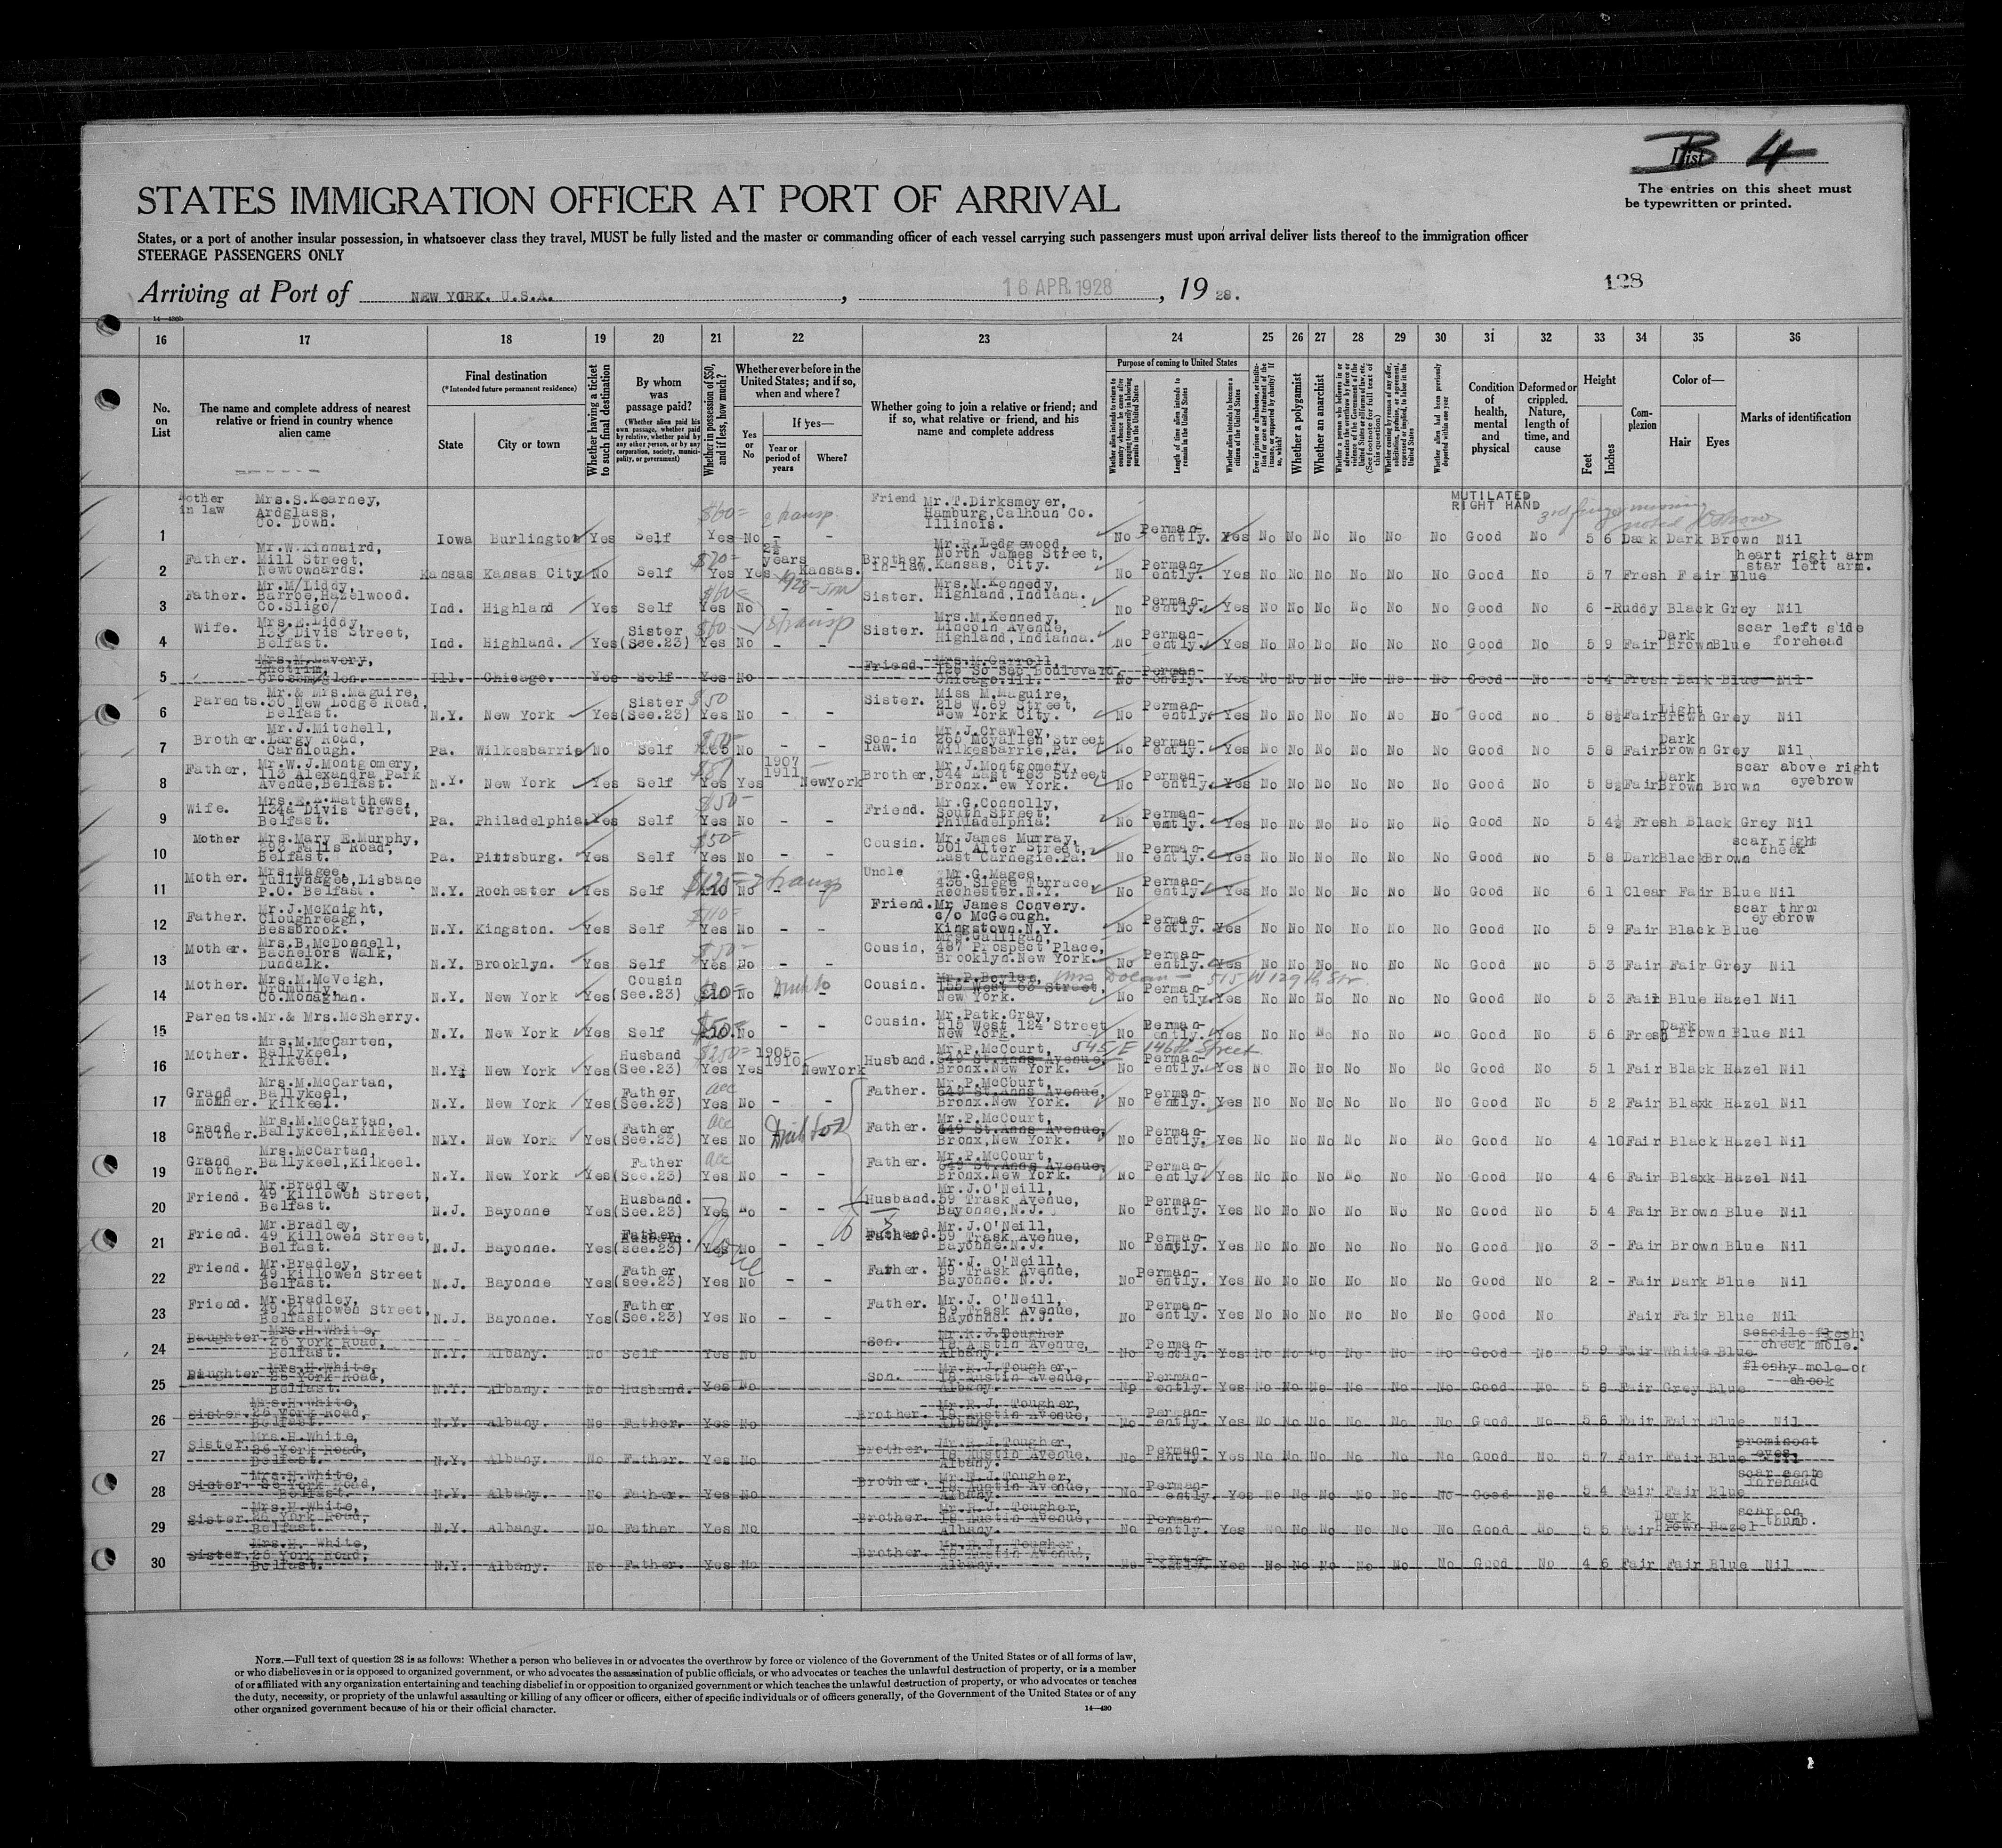 List B 4
The entries on this sheet must
be typewritten or printed.
STATES IMMIGRATION OFFICER AT PORT OF ARRIVAL
States, or a port of another insular possession, in whatsoever class they travel, MUST be fully listed and the master or commanding officer of each vessel carrying such passengers must upon arrival deliver lists thereof to the immigration officer
STEERAGE PASSENGERS ONLY
Arriving at Port of NEW YORK. U.S.A. , 16 APR. 1928 , 19 28.
128
16 17 18 19 20 21 22 23 24 25 26 27 28 29 30 31 32 33 34 35 36
No. on List
The name and complete address of nearest relative or friend in country whence alien came
Final destination
(*Intended future permanent residence)
State
City or town
Whether having a ticket to such final destination
By whom was passage paid?
(Whether alien paid his own passage, whether paid by relative, whether paid by any other person, or by any corporation, society, municipality, or government)
Whether in possession of $50, and if less, how much?
Whether ever before in the United States; and if so, when and where?
Yes or No
If yes—
Year or period of years
Where?
Whether going to join a relative or friend; and if so, what relative or friend, and his name and complete address
Purpose of coming to United States
Length of time alien intends to remain in the United States
Whether alien intends to become a citizen of the United States
Whether a polygamist
Whether an anarchist
Condition of health, mental and physical
Deformed or crippled. Nature, length of time, and cause
Height
Feet
Inches
Complexion
Color of—
Hair
Eyes
Marks of identification
MUTILATED
RIGHT HAND
1 Mother in law Mrs.S.Kearney, Ardglass, Co. Down. Iowa Burlington Yes Self $60 Yes No - - Friend Mr.T.Dirksmeyer, Hamburg,Calhoun Co. Illinois. No Permanently. Yes No No No No No No Good No 5 6 Dark Dark Brown Nil
2 Father. Mr.W.Kinnaird, Mill Street, Newtownards. Kansas Kansas City No Self $70 Yes Yes 2½ years Kansas. Brother in-law. Mr.R.Ledgewood, North James Street, Kansas, City. No Permanently. Yes No No No No No No Good No 5 7 Fresh Fair Blue heart right arm star left arm.
3 Father. Mr.M/Liddy, Barroe,Hazelwood. Co.Sligo/ Ind. Highland Yes Self $60 Yes No - - Sister. Mrs.M.Kennedy, Highland,Indiana. No Permanently Yes No No No No No No Good No 6 - Ruddy Black Grey Nil
4 Wife. Mrs.E.Liddy, 133 Divis Street, Belfast. Ind. Highland. Yes Sister (See.23) $60 Yes No - - Sister. Mrs.M.Kennedy, Lincoln Avenue, Highland,Indianna. No Permanently Yes No No No No No No Good No 5 9 Fair Dark Brown Blue scar left side forehead
5 Mrs.M.Lavery, Crossmglen. Ill. Chicago. Yes Self Yes No Friend. Mrs.M.Carroll, Boulevard, Chicago.Ill. No Permanently. Yes No No No No No No Good No 5 4 Fresh Dark Blue Nil
6 Parents. Mr.& Mrs.Maguire, 30 New Lodge Road, Belfast. N.Y. New York Yes Sister (See.23) $50 Yes No - - Sister. Miss M.Maguire, 218 W.69 Street, New York City. No Permanently. Yes No No No No No No Good No 5 8½ Fair Light Brown Grey Nil
7 Brother. Mr.J.Mitchell, Largy Road, Carnlough. Pa. Wilkesbarrie No Self No - - Son-in law. Mr.J.Crawley, Street Wilkesbarrie,Pa. No Permanently. Yes No No No No No No Good No 5 8 Fair Dark Brown Grey Nil
8 Father, Mr.W.J.Montgomery, 113 Alexandra Park Avenue,Belfast. N.Y. New York Yes Self Yes Yes 1907 1911 NewYork Brother, Mr.J.Montgomery, 544 East 183 Street Bronx. ew York. No Permanently. Yes No No No No No No Good No 5 8½ Fair Dark Brown Brown scar above right eyebrow
9 Wife. Mrs.E.A.Matthews, 134a Divis Street, Belfast. Pa. Philadelphia. Yes Self $50 Yes No - - Friend. Mr.G.Connolly, South Street, Philadelphia. No Permanently. Yes No No No No No No Good No 5 4½ Fresh Black Grey Nil
10 Mother Mrs.Mary E.Murphy, 293 Falls Road, Belfast. Pa. Pittsburg. Yes Self $50 Yes No - - Cousin. Mr.James Murray, 501 Alter Street, East Carnegie.Pa. No Permanently. Yes No No No No No No Good No 5 8 Dark Black Brown scar right cheek
11 Mother. Mrs.Magee, Tullynagee,Lisbane P.O. Belfast. N.Y. Rochester Yes Self $120 No - - Uncle Mr.G.Magee, 436 Siege Terrace, Rochester.N.Y. No Permanently. Yes No No No No No No Good No 6 1 Clear Fair Blue Nil
12 Father. Mr.J.McKnight, Cloughreagh, Bessbrook. N.Y. Kingston. Yes Self $110 Yes No - - Friend. Mr James Convery. c/o McGeough. Kingstown.N.Y. No Permanently. Yes No No No No No No Good No 5 9 Fair Black Blue scar thro eyebrow
13 Mother. Mrs.B.McDonnell, Bachelors Walk, Dundalk. N.Y. Brooklyn. Yes Self $50 Yes No - - Cousin, Mrs.Galligan, 487 Prospect Place, Brooklyn.New York. No Permanently. Yes No No No No No No Good No 5 3 Fair Fair Grey Nil
14 Mother. Mrs.M.McVeigh, Drumully, Co.Monaghan. N.Y. New York Yes Cousin (See.23) No - - Cousin. Mr.P.Boylan, 155 West 63 Street, New York. Mrs Dolan - 515 W 129th Str. No Permanently. Yes No No No No No No Good No 5 3 Fair Blue Hazel Nil
15 Parents. Mr.& Mrs.McSherry. N.Y. New York Yes Self $50 No - - Cousin. Mr.Patk.Gray, 515 West 124 Street New York. No Permanently. Yes No No No No No No Good No 5 6 Fresh Dark Brown Blue Nil
16 Mother. Mrs.M.McCarten, Ballykeel, Kilkeel. N.Y. New York Yes Husband (See.23) $250 Yes Yes 1905-1910 NewYork Husband. Mr.P.McCourt, 649 St.Anns Avenue, Bronx.New York. 545 E 146th Street No Permanently. Yes No No No No No No Good No 5 1 Fair Black Hazel Nil
17 Grand mother. Mrs.M.McCartan, Ballykeel, Kilkeel. N.Y. New York Yes Father (See.23) acc Yes No - - Father. Mr.P.McCourt, 649 St.Anns Avenue, Bronx.New York. No Permanently. Yes No No No No No No Good No 5 2 Fair Blaxk Hazel Nil
18 Grand mother. Mrs.M.McCartan, Ballykeel,Kilkeel. N.Y. New York Yes Father (See.23) acc Yes No Father. Mr.P.McCourt, 649 St.Anns Avenue, Bronx,New York. No Permanently. Yes No No No No No No Good No 4 10 Fair Black Hazel Nil
19 Grand mother. Mrs.McCartan, Ballykeel,Kilkeel. N.Y. New York Yes Father (See.23) acc Yes No - - Father. Mr.P.McCourt, 649 St.Anns Avenue, Bronx.New York. No Permanently. Yes No No No No No No Good No 4 6 Fair Blaxk Hazel Nil
20 Friend. Mr.Bradley, 49 Killowen Street, Belfast. N.J. Bayonne Yes Husband. (See.23) Yes No - - Husband. Mr.J.O'Neill, 59 Trask Avenue, Bayonne,N.J. No Permanently. Yes No No No No No No Good No 5 4 Fair Brown Blue Nil
21 Friend. Mr.Bradley, 49 Killowen Street, Belfast. N.J. Bayonne. Yes Father (see.23) Yes No - - Father. Mr.J.O'Neill, 59 Trask Avenue, Bayonne.N.J. No Permanently. Yes No No No No No No Good No 3 - Fair Brown Blue Nil
22 Friend. Mr.Bradley, 49 Killowen Street Belfast. N.J. Bayonne Yes Father (see.23) Yes No - - Father. Mr.J. O'Neill, 59 Trask Avenue, Bayonne. N.J. No Permanently. Yes No No No No No No Good No 2 - Fair Dark Blue Nil
23 Friend. Mr.Bradley, 49 Killowen Street, Belfast. N.J. Bayonne. Yes Father (See.23) Yes No - - Father. Mr.J. O'Neill, 59 Trask Avenue, Bayonne. N.J. No Permanently. Yes No No No No No No Good No Fair Fair Blue Nil
24 Daughter. Mrs.H.White, 26 York Road, Belfast. N.Y. Albany. No Self Yes No Son. Mr.R.J.Tougher 18 Austin Avenue, Albany. No Permanently. Yes No No No No No No Good No 5 9 Fair White Blue sessile fleshy cheek mole.
25 Daughter Mrs.H.White, 26 York Road, Belfast. N.Y. Albany. No Husband. Yes No Son. Mr.R.J.Tougher, 18 Austin Avenue, Albany. No Permanently. Yes No No No No No No Good No 5 8 Fair Grey Blue fleshy mole on cheek
26 Sister. Mrs.H.White, 26 York Road, Belfast. N.Y. Albany. No Father. Yes No Brother. Mr.R.J. Tougher, 18 Austin Avenue, Albany. No Permanently. Yes No No No No No No Good No 5 6 Fair Fair Blue Nil
27 Sister. Mrs.H.White, 26 York Road, Belfast. N.Y. Albany. No Father. Yes No Brother. Mr.R.J.Tougher, 18 Austin Avenue, Albany. No Permanently. Yes No No No No No No Good No 5 7 Fair Fair Blue prominent eyes.
28 Sister. Mrs.H.White, 26 York Road, Belfast. N.Y. Albany. No Father. Yes No Brother. Mr.R.J.Tougher, 18 Austin Avenue, Albany. No Permanently. Yes No No No No No No Good No 5 4 Fair Fair Blue scar forehead
29 Sister. Mrs.H.White, 26 York Road, Belfast. N.Y. Albany. No Father Yes No Brother. Mr.R.J. Tougher, 18 Austin Avenue, Albany. No Permanently. Yes No No No No No No Good No 5 5 Fair Dark Brown Hazel scar on thumb.
30 Sister. Mrs.H. White, 26 York Road, Belfast. N.Y. Albany. No Father. Yes No Brother. Mr.R.J. Tougher, 18 Austin Avenue, Albany. No Yes No No No No No No Good No 4 6 Fair Fair Blue Nil
NOTE.—Full text of question 28 is as follows: Whether a person who believes in or advocates the overthrow by force or violence of the Government of the United States or of all forms of law,
or who disbelieves in or is opposed to organized government, or who advocates the assassination of public officials, or who advocates or teaches the unlawful destruction of property, or is a member
of or affiliated with any organization entertaining and teaching disbelief in or opposition to organized government or which teaches the unlawful destruction of property, or who advocates or teaches
the duty, necessity, or propriety of the unlawful assaulting or killing of any officer or officers, either of specific individuals or of officers generally, of the Government of the United States or of any
other organized government because of his or their official character.
14—430